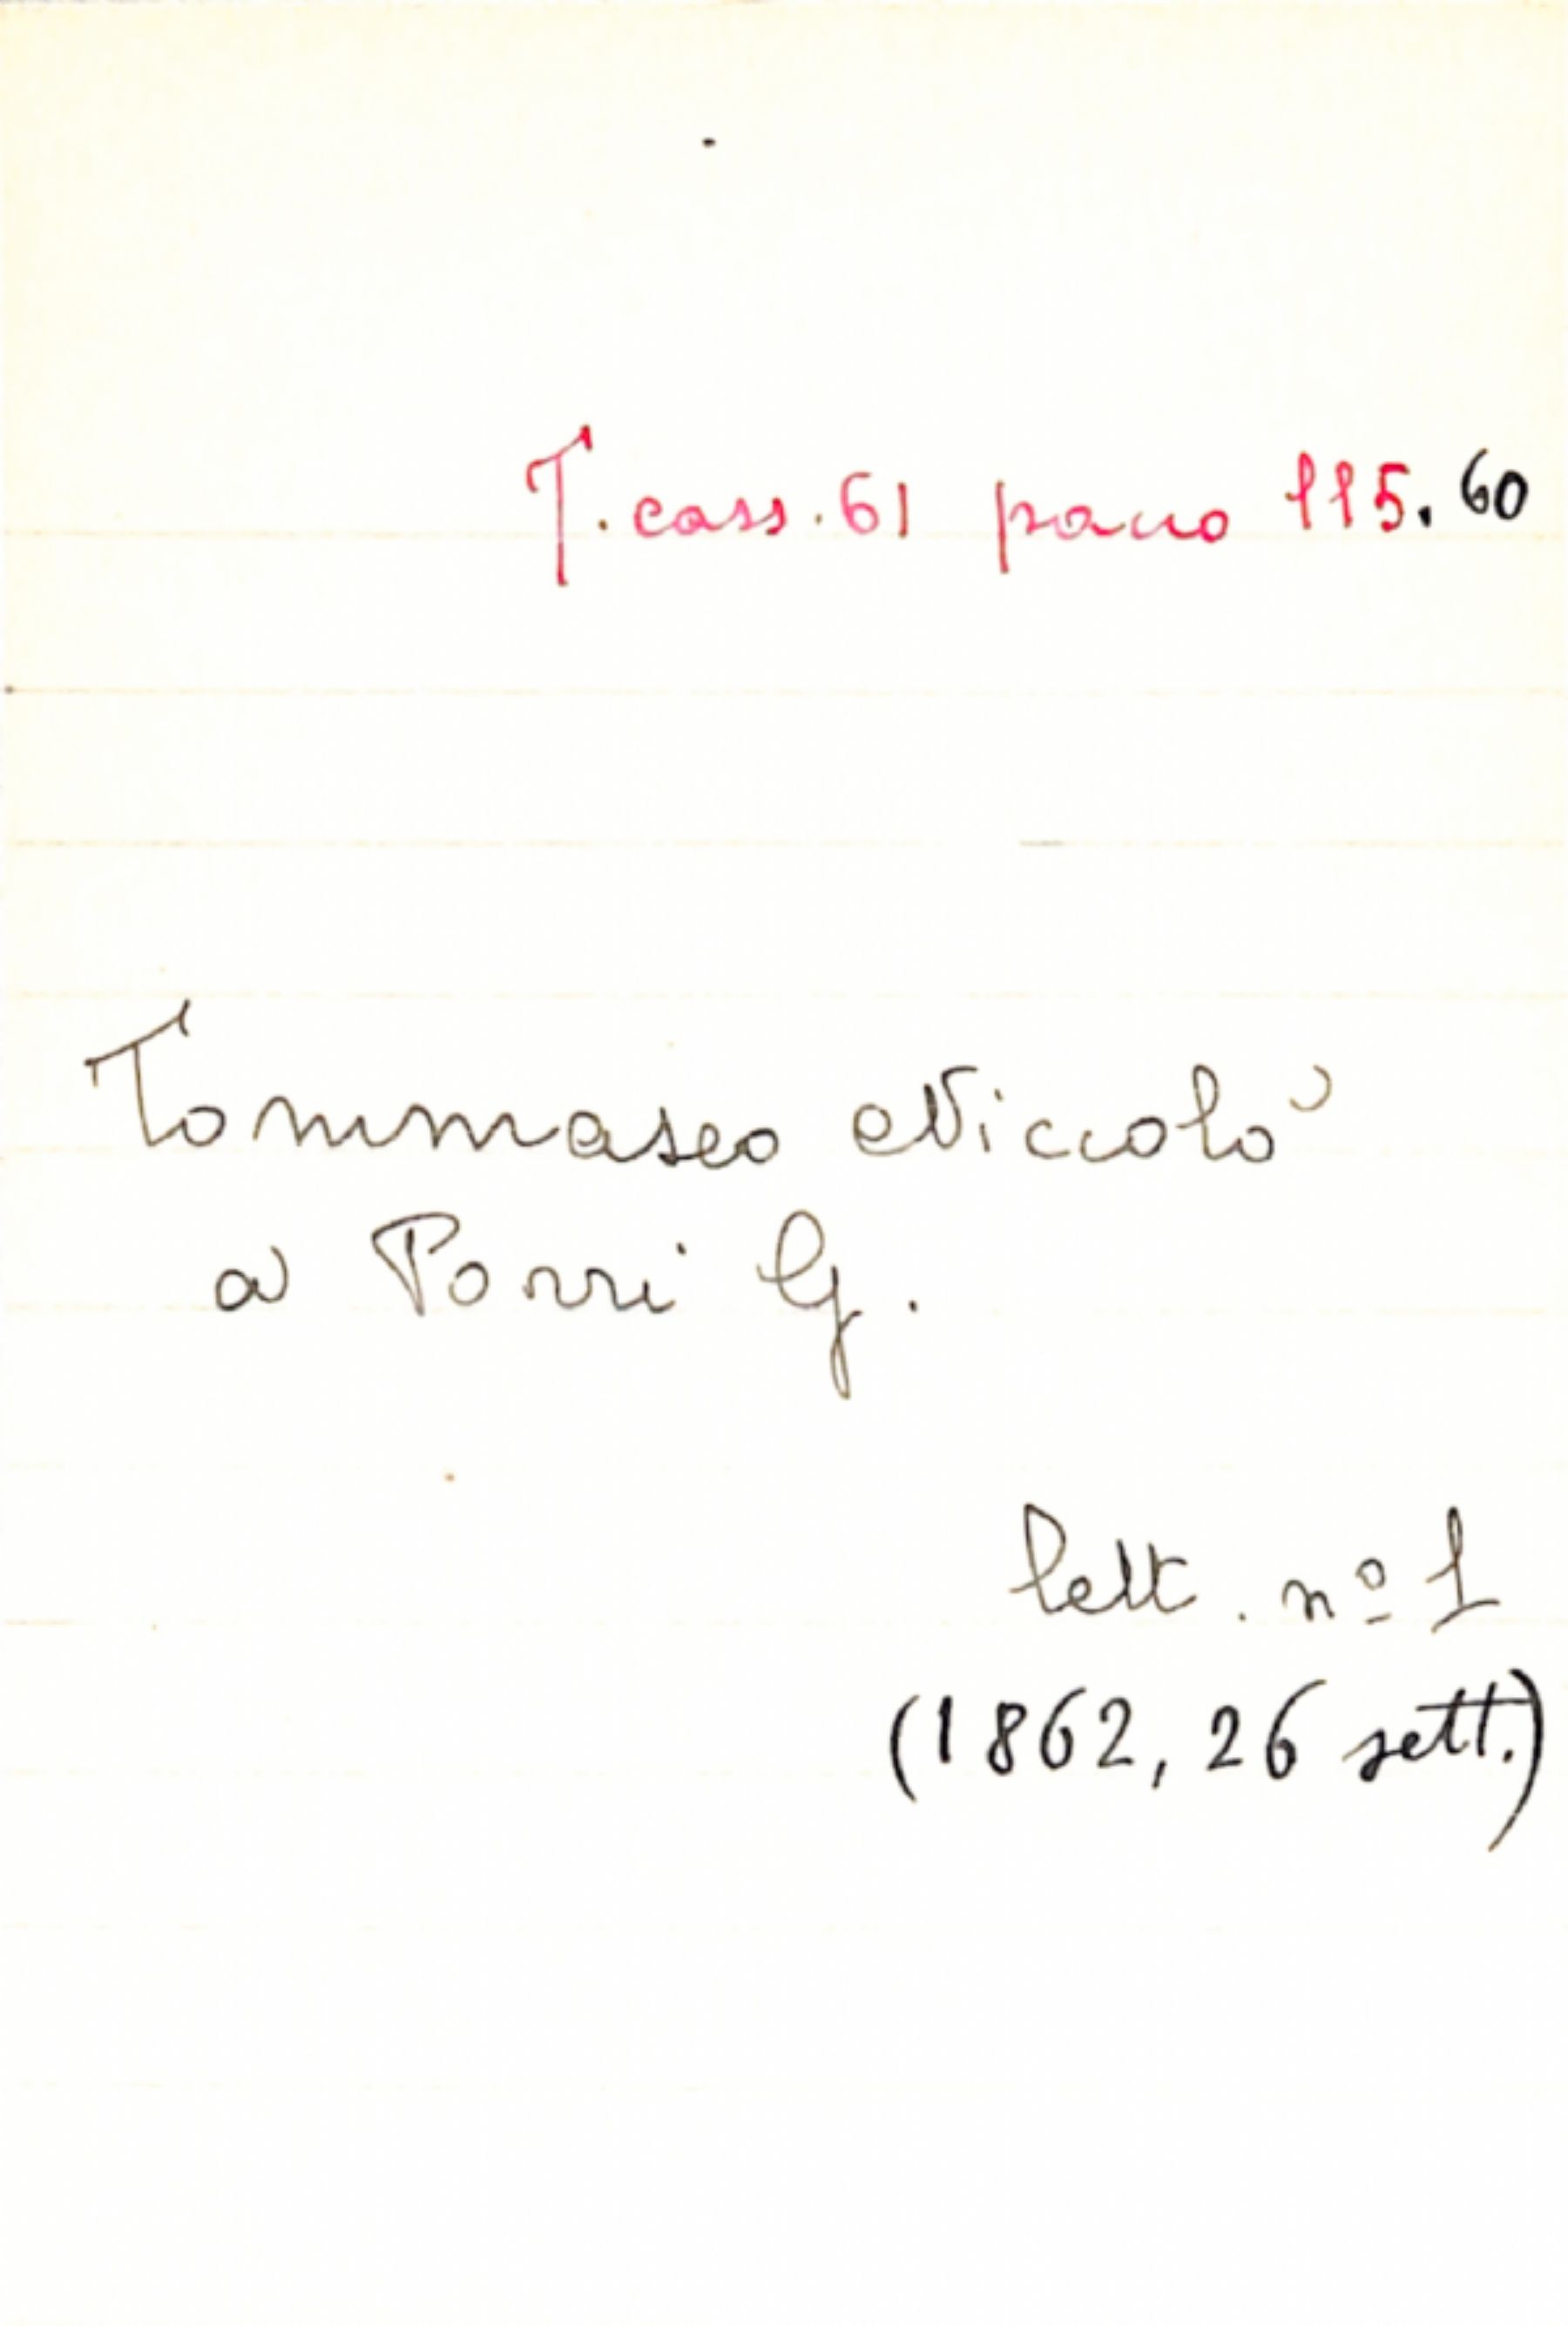 T. cass. 61 pacco 115.60
Tommaseo Niccolò
a Porri G.
lett. nº 1
(1862, 26 sett.)